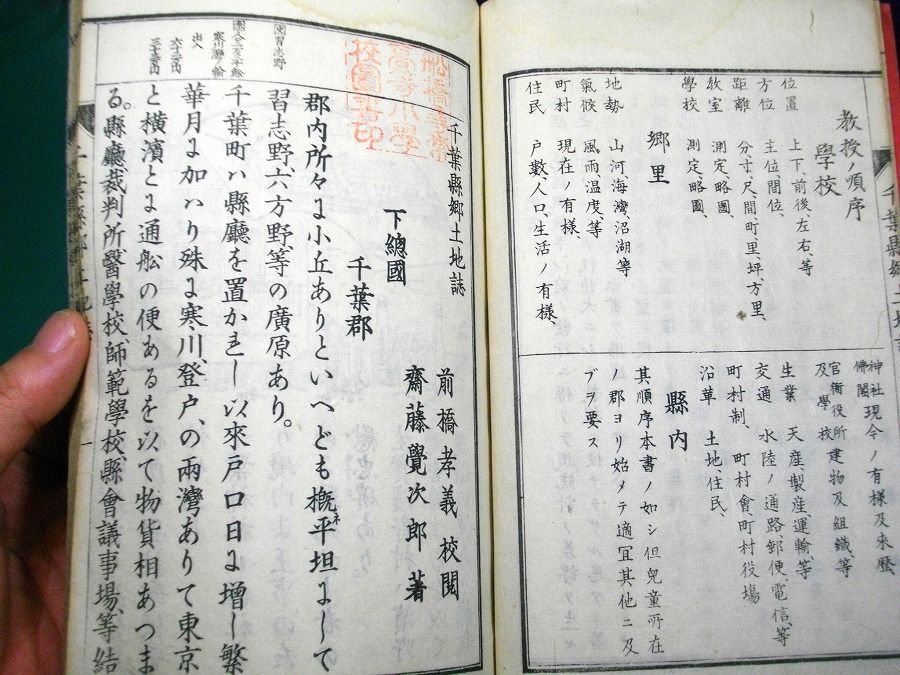 教授ノ順序
學校
位置 上下前後、左右、等
方位 主位、間位、
距離 分寸、尺間、町、里、坪、方里、
教室 測定、略圖、
學校 測定、略圖、
郷里
地勢 山河海灣、沼湖等
氣候 風雨温度、等
町村 現在ノ有様、
住民 戸數、人口、生活ノ有様、
神社佛閣 現今ノ有様及来歷
官衙役所及學校 建物及組織、等
生業 天産、製産、運輸、等
交通 水陸ノ通路、郵便、電信、等
町村制、町村會、町村役塲
沿革 土地住民、
縣内
其順序本書ノ如シ但兒童所在
ノ郡ヨリ始メテ適宜其他ニ及
ブヲ要ス
千葉縣郷土地誌
前橋孝義校閲
齋藤覺次郎著
下總國
千葉郡
郡内所々に小丘ありといへども概ネ平坦にして
習志野、六方野、等の廣原あり。
千葉町ハ縣廳を置かれし以來戸口日に増し繁
華月に加ハり殊に寒川、登戸、の兩灣ありて東京
と横濱とに通船の便あるを以て物貨相あつま
る。縣廳、裁判所、醫學校、師範學校、縣會議事場、等結
習志野
寒川灣ノ輸
出入
六十三万円
三十五万円
一